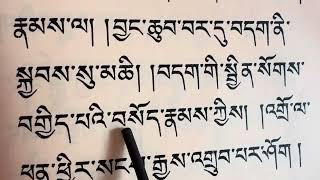 རྣམས་ལ། །བྱང་ཆུབ་བར་དུ་བདག་ནི་
སྐྱབས་སུ་མཆི། །བདག་གི་སྦྱིན་སོགས་
བགྱིད་པའི་བསོད་རྣམས་ཀྱིས། །འགྲོ་ལ་
ཕན་ཕྱིར་སངས་རྒྱས་འགྲུབ་པར་ཤོག །